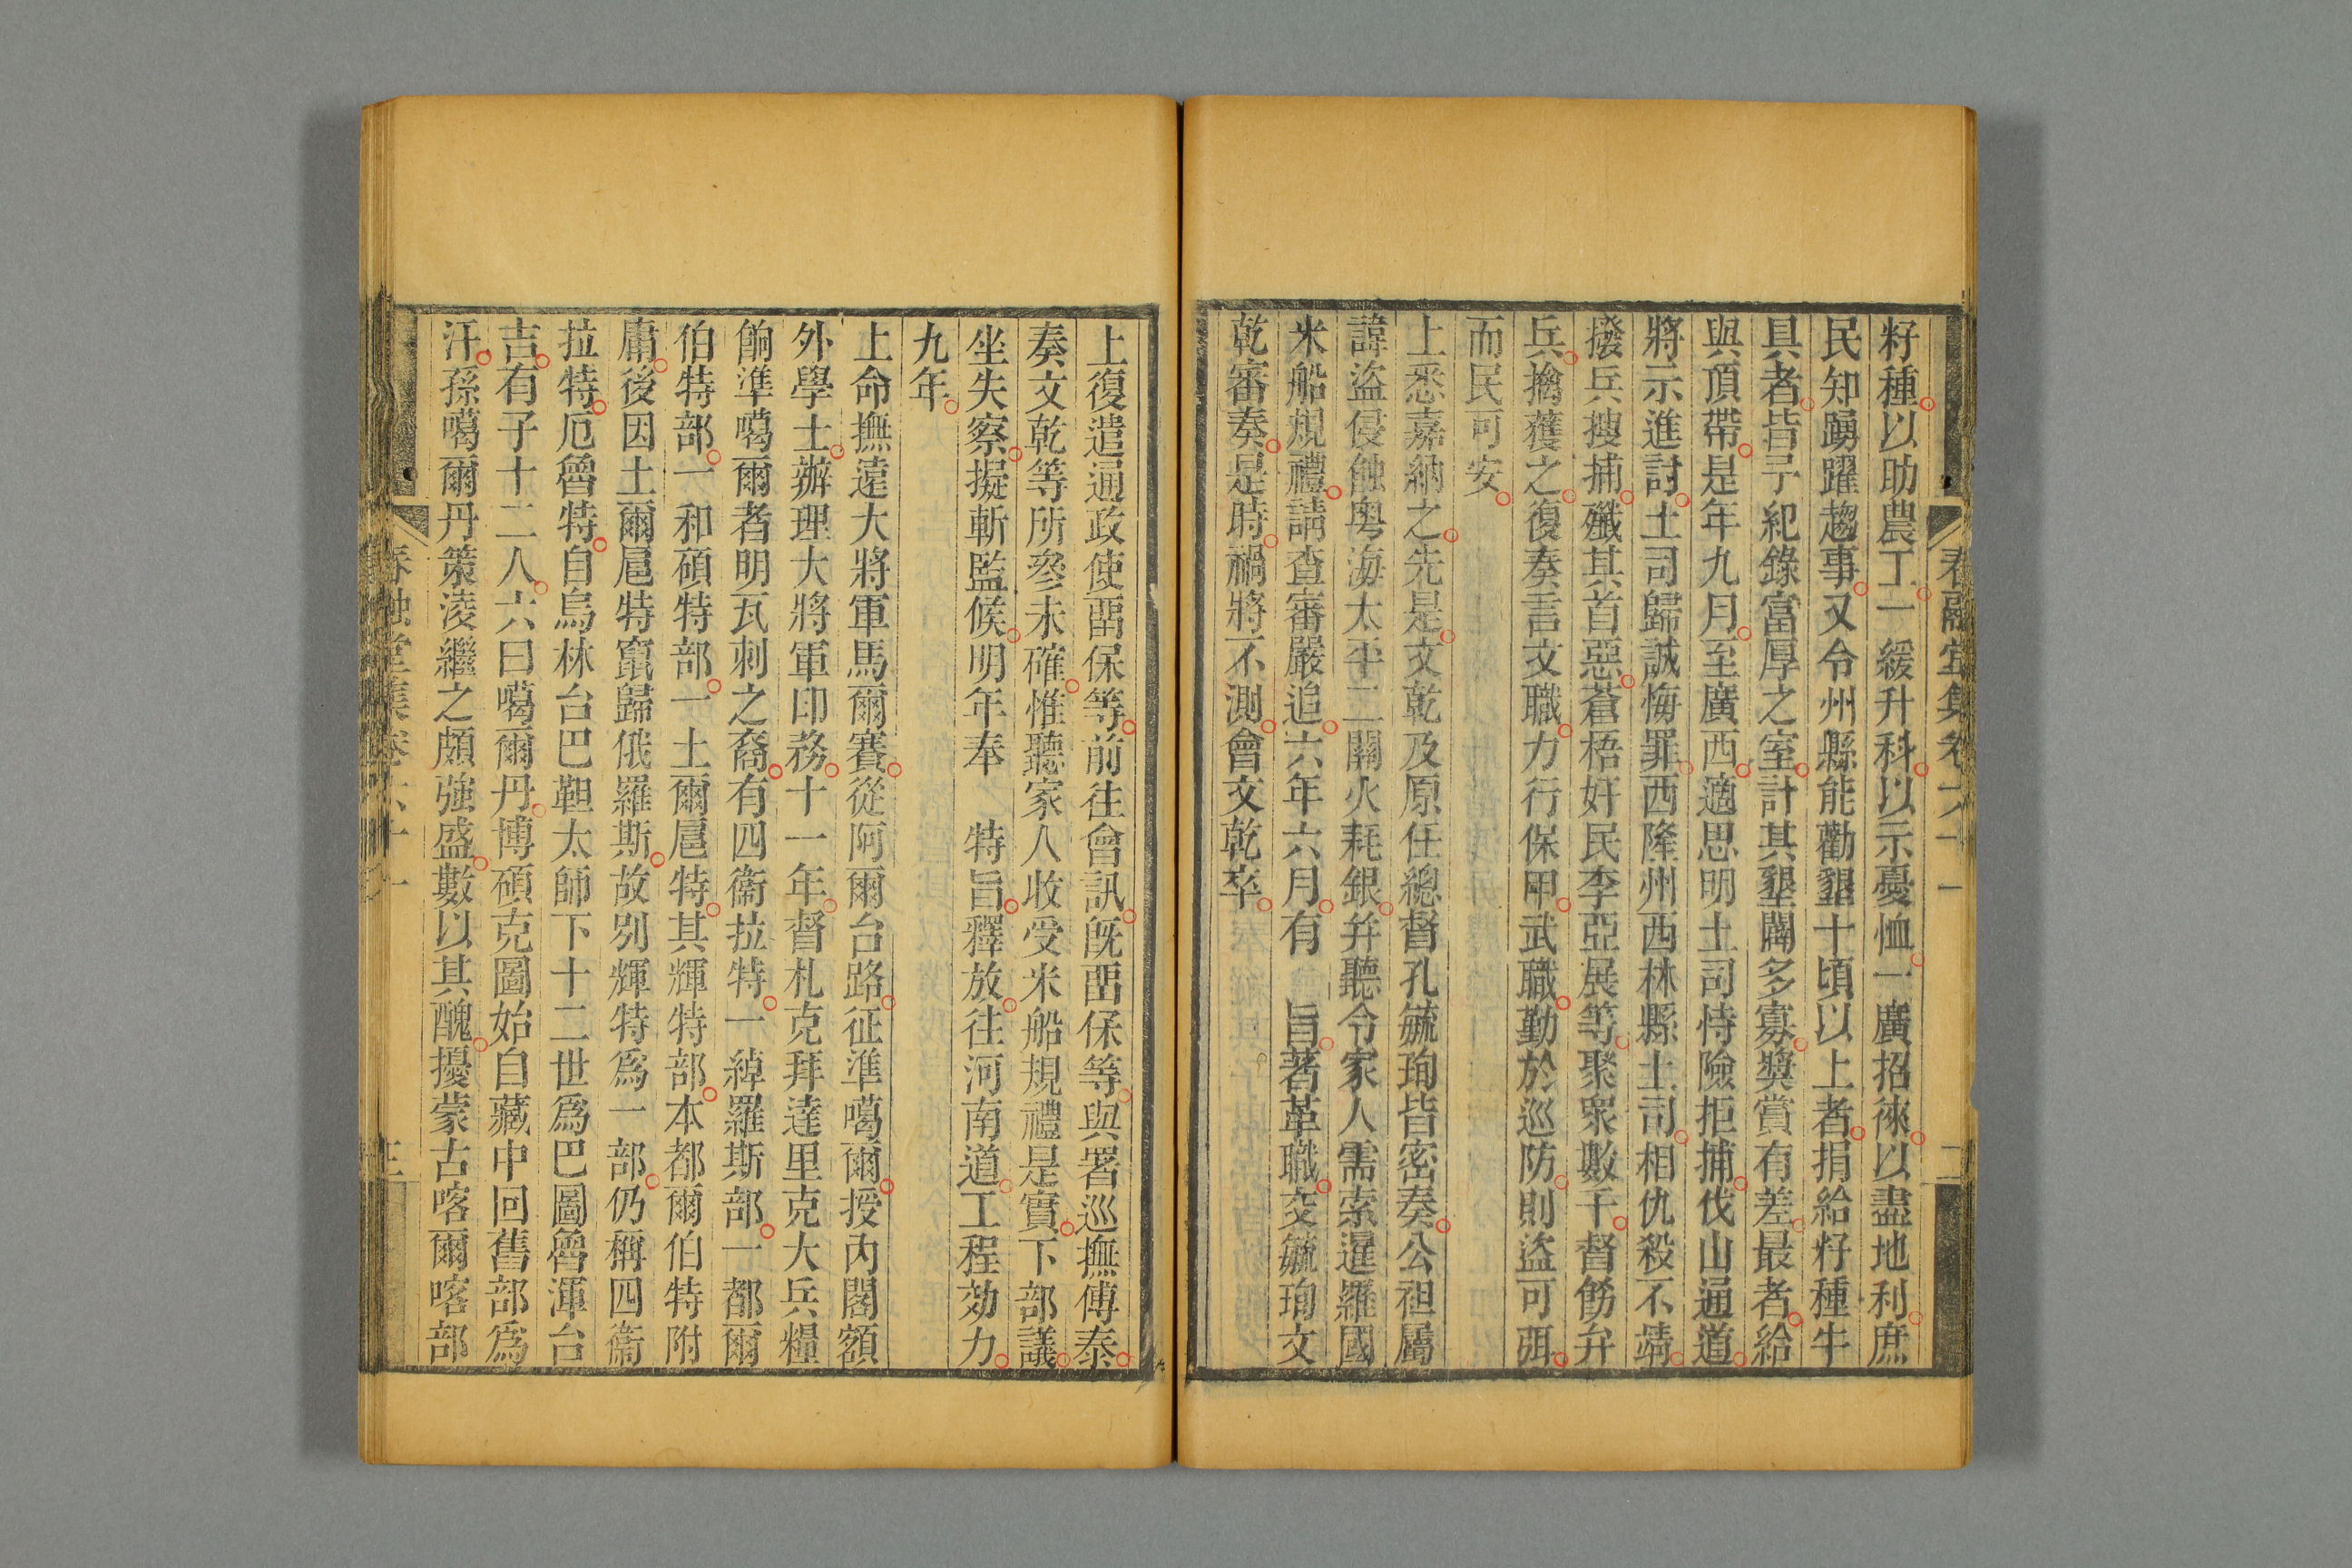 籽種以助農工一緩升科以示憂恤一廣招徠以盡地利庶
民知踴躍趨事又令州縣能勸墾十頃以上者捐給籽種牛
具者皆予紀錄富厚之室計其墾闢多寡獎賞有差最者給
與頂帶是年九月至廣西適思明土司恃險拒捕伐山通道
將示進討土司歸誠悔罪西隆州西林縣土司相仇殺不靖
撥兵搜捕殲其首惡蒼梧奸民李亞展等聚眾數千督飭弁
兵擒獲之復奏言文職力行保甲武職勤於巡防則盜可弭
而民可安
上悉嘉納之先是文乾及原任總督孔毓珣皆密奏公袒屬
諱盜侵蝕粵海太平二關火耗銀并聽令家人需索暹羅國
米船規禮請查審嚴追六年六月有 旨著革職交毓珣文
乾審奏是時禍將不測會文乾卒
上復遣通政使留保等前往會訊既留保等與署巡撫傅泰
奏文乾等所參未確惟聽家人收受米船規禮是實下部議
坐失察擬斬監候明年奉 特旨釋放往河南道工程効力
九年
上命撫遠大將軍馬爾賽從阿爾台路征準噶爾授內閣額
外學士辦理大將軍印務十一年督札克拜達里克大兵糧
餉準噶爾者明瓦剌之裔有四衞拉特一綽羅斯部一都爾
伯特部一和碩特部一土爾扈特其輝特部本都爾伯特附
庸後因土爾扈特竄歸俄羅斯故別輝特為一部仍稱四衞
拉特厄魯特自烏林台巴靼太師下十二世為巴圖魯渾台
吉有子十二人六曰噶爾丹博碩克圖始自藏中回舊部為
汗孫噶爾丹策淩繼之頗強盛數以其醜擾蒙古喀爾喀部
春融堂集卷六十一
二
春融堂集卷六十一
三